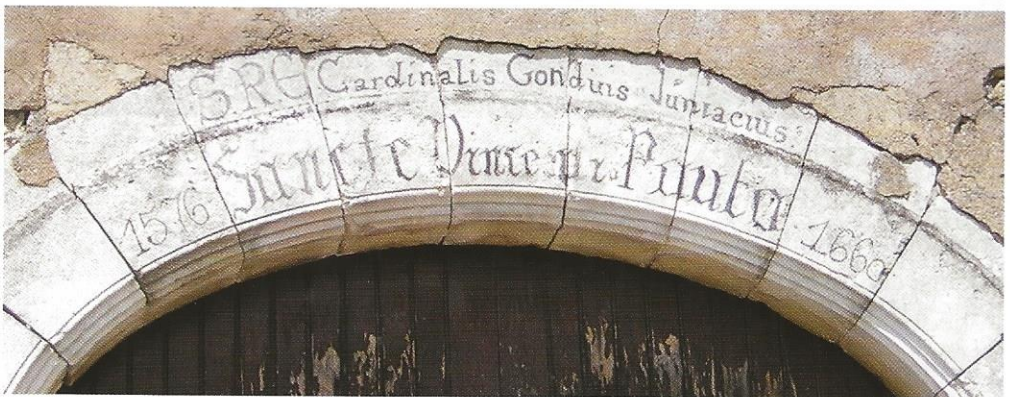 S.R.E Cardinalis Gondius Juniacius
Sancte Vincenti Paulo
1576 1660